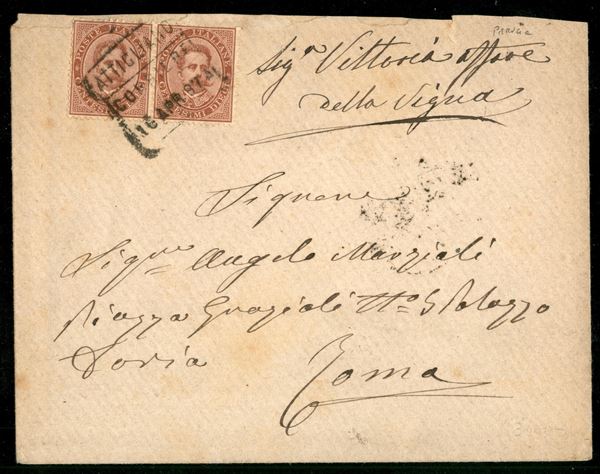 POSTE ITALIANE POSTE ITALIANE
16 APR 87
Sig.ª Vittoria affare
della Vigna
Signore
Sig.re Angelo Marziali
Piazza Grazioli Nº 5 Palazzo
Doria
Roma